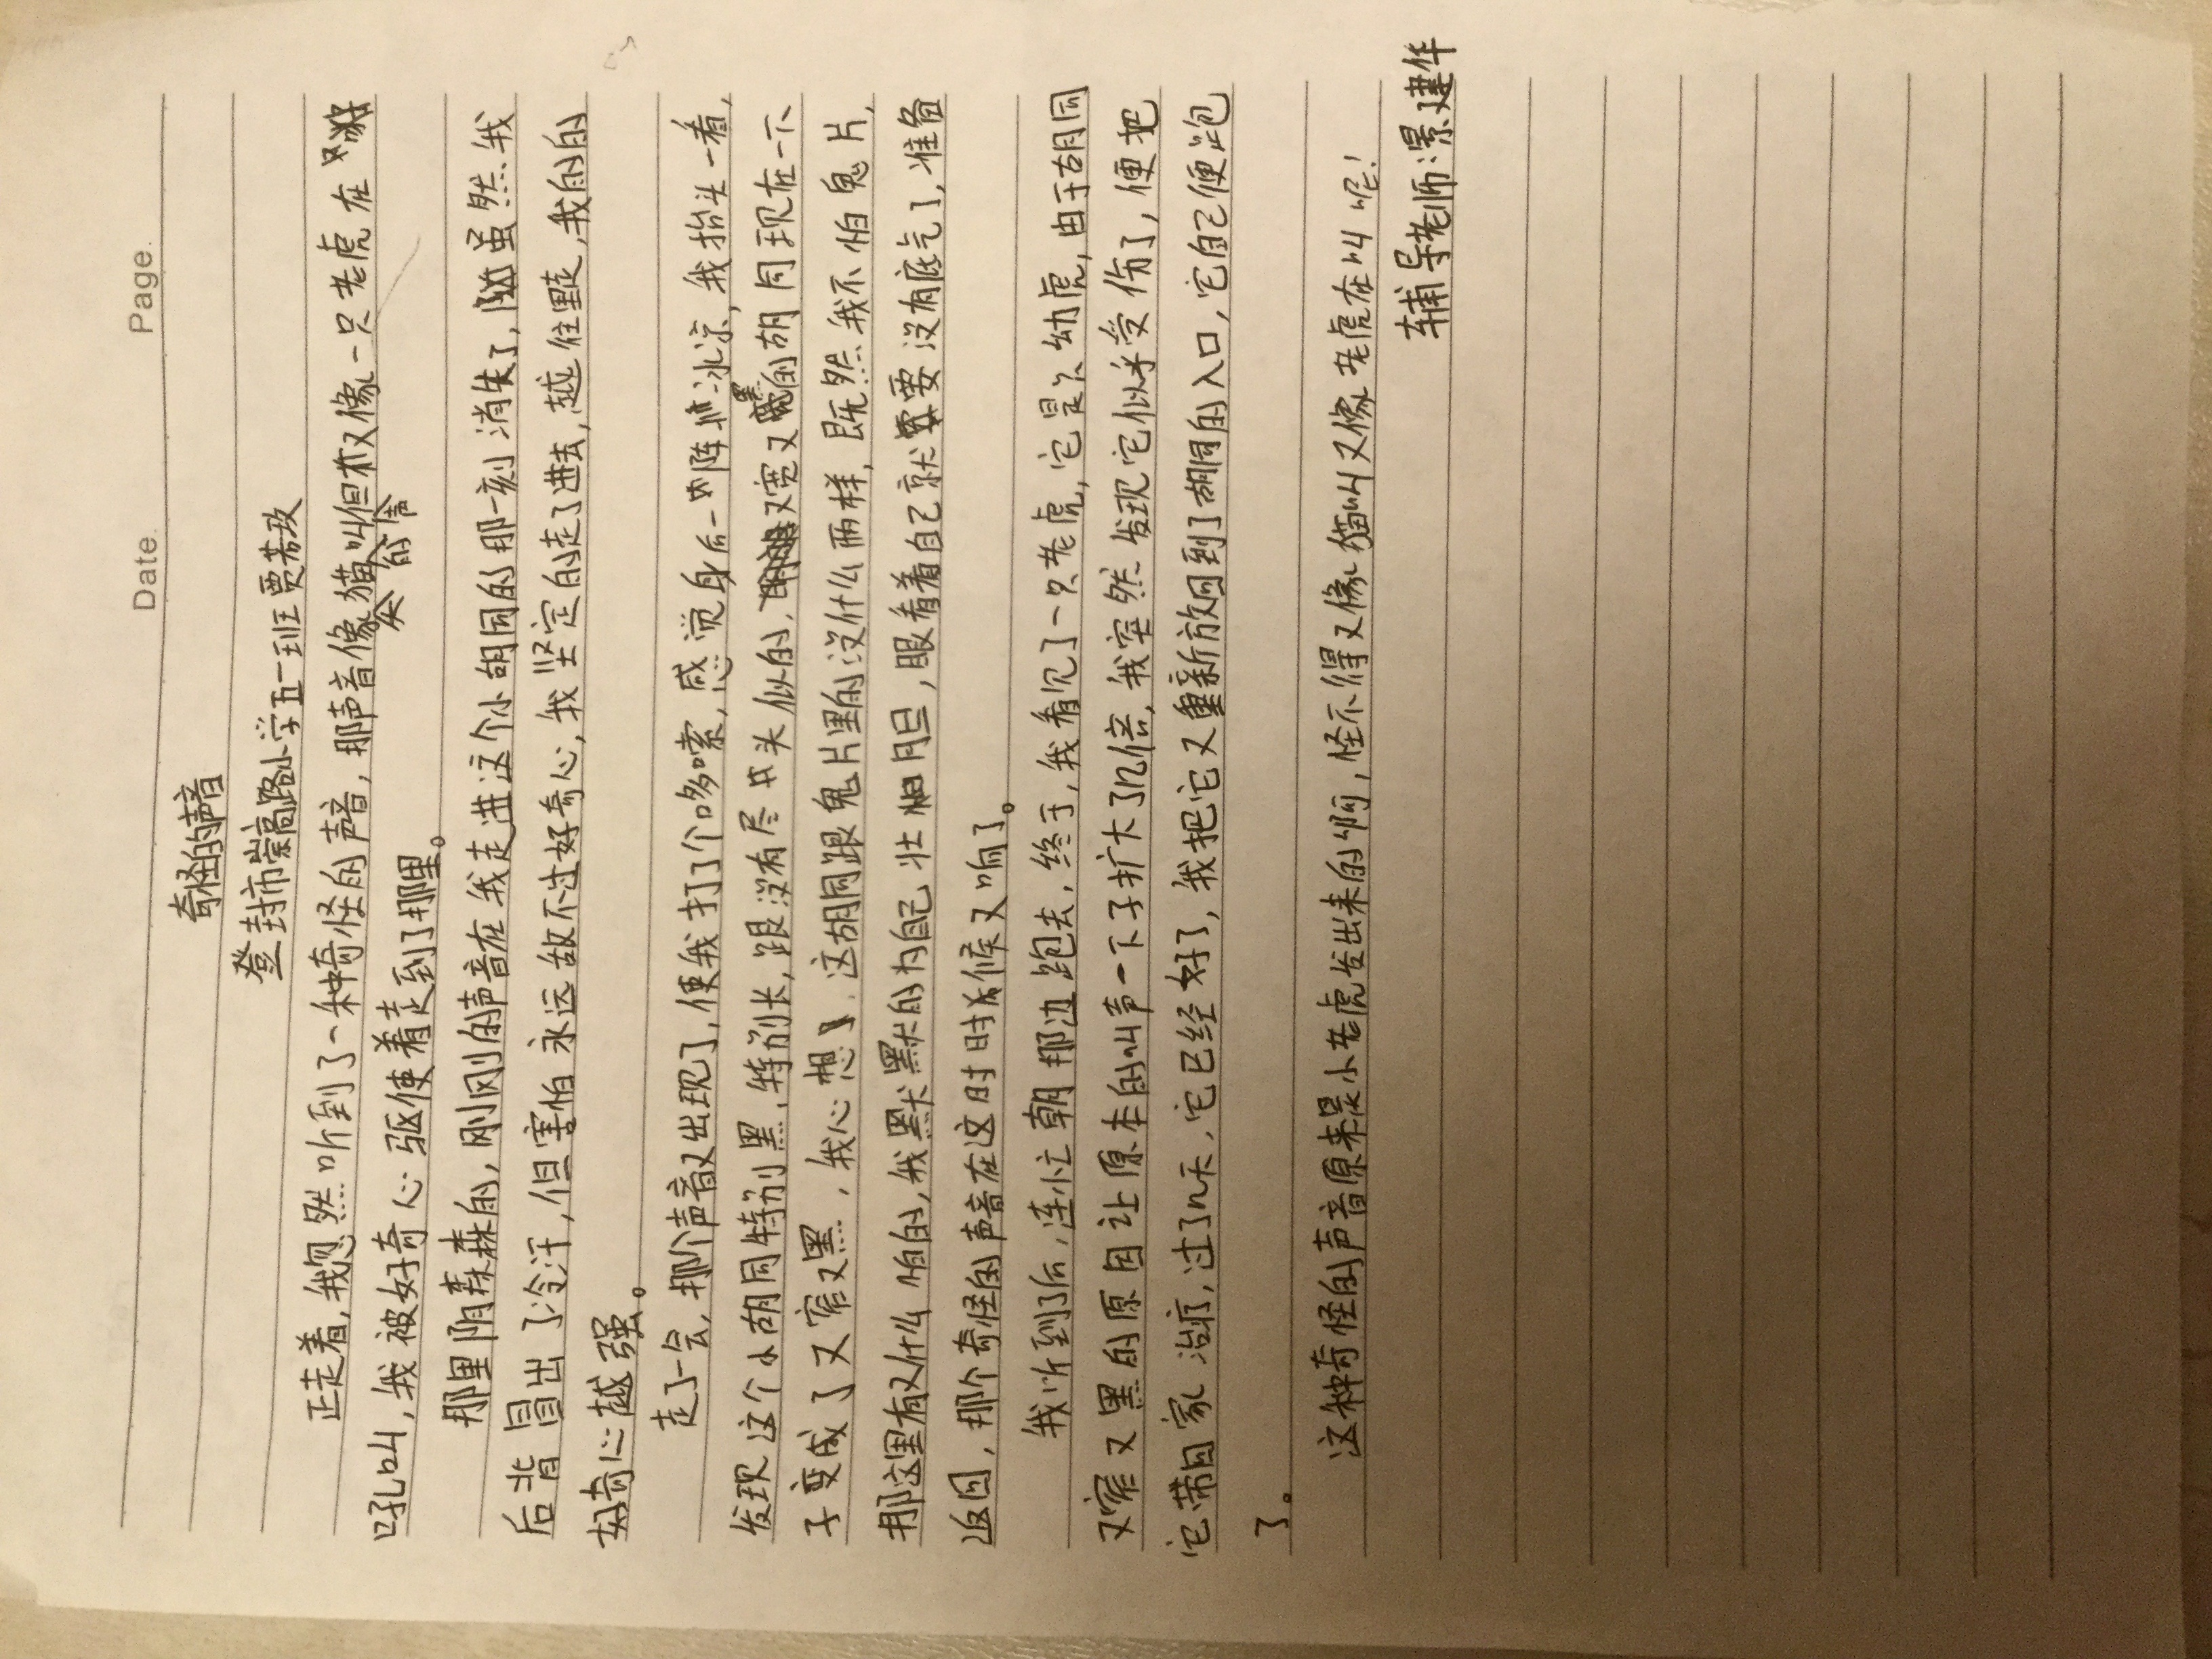 Date. Page.
奇怪的声音
登封市嵩高路小学五一班贾若玫
正走着,我忽然听到了一种奇怪的声音,那声音像猫叫但又像一只老虎在
吼叫,我被好奇心驱使着走到了那里。
那里阴森森的,刚刚的声音在我走进这个小胡同的那一刻消失了,虽然我
后背冒出了冷汗,但害怕永远敌不过好奇心,我坚定的走了进去,越往里走,我的的
好奇心越强。
走了一会,那个声音又出现了,使我打了个哆嗦,感觉身后一阵冰凉,我抬头一看,
发现这个小胡同特别黑,特别长,跟没有尽头似的,又宽又黑的胡同现在一下
子变成了又窄又黑,我心想,这胡同跟鬼片里的没什么两样,既然我不怕鬼片,
那这里有又什么怕的,我默默的为自己壮胆,眼看着自己就要没有底气了,准备
返回,那个奇怪的声音在这时时候又响了。
我听到了后,连忙朝那边跑去,终于,我看见了一只老虎,它是个幼虎,由于胡同
又窄又黑的原因让原本的叫声一下子扩大了n倍,我突然发现它似乎受伤了,便把
它带回家治疗,过了n天,它已经好了,我把它又重新放回到了胡同的入口,它自己便跑
了。
这种奇怪的声音原来是小老虎发出来的啊,怪不得又像猫叫又像老虎在叫呢!
辅导老师:景建华